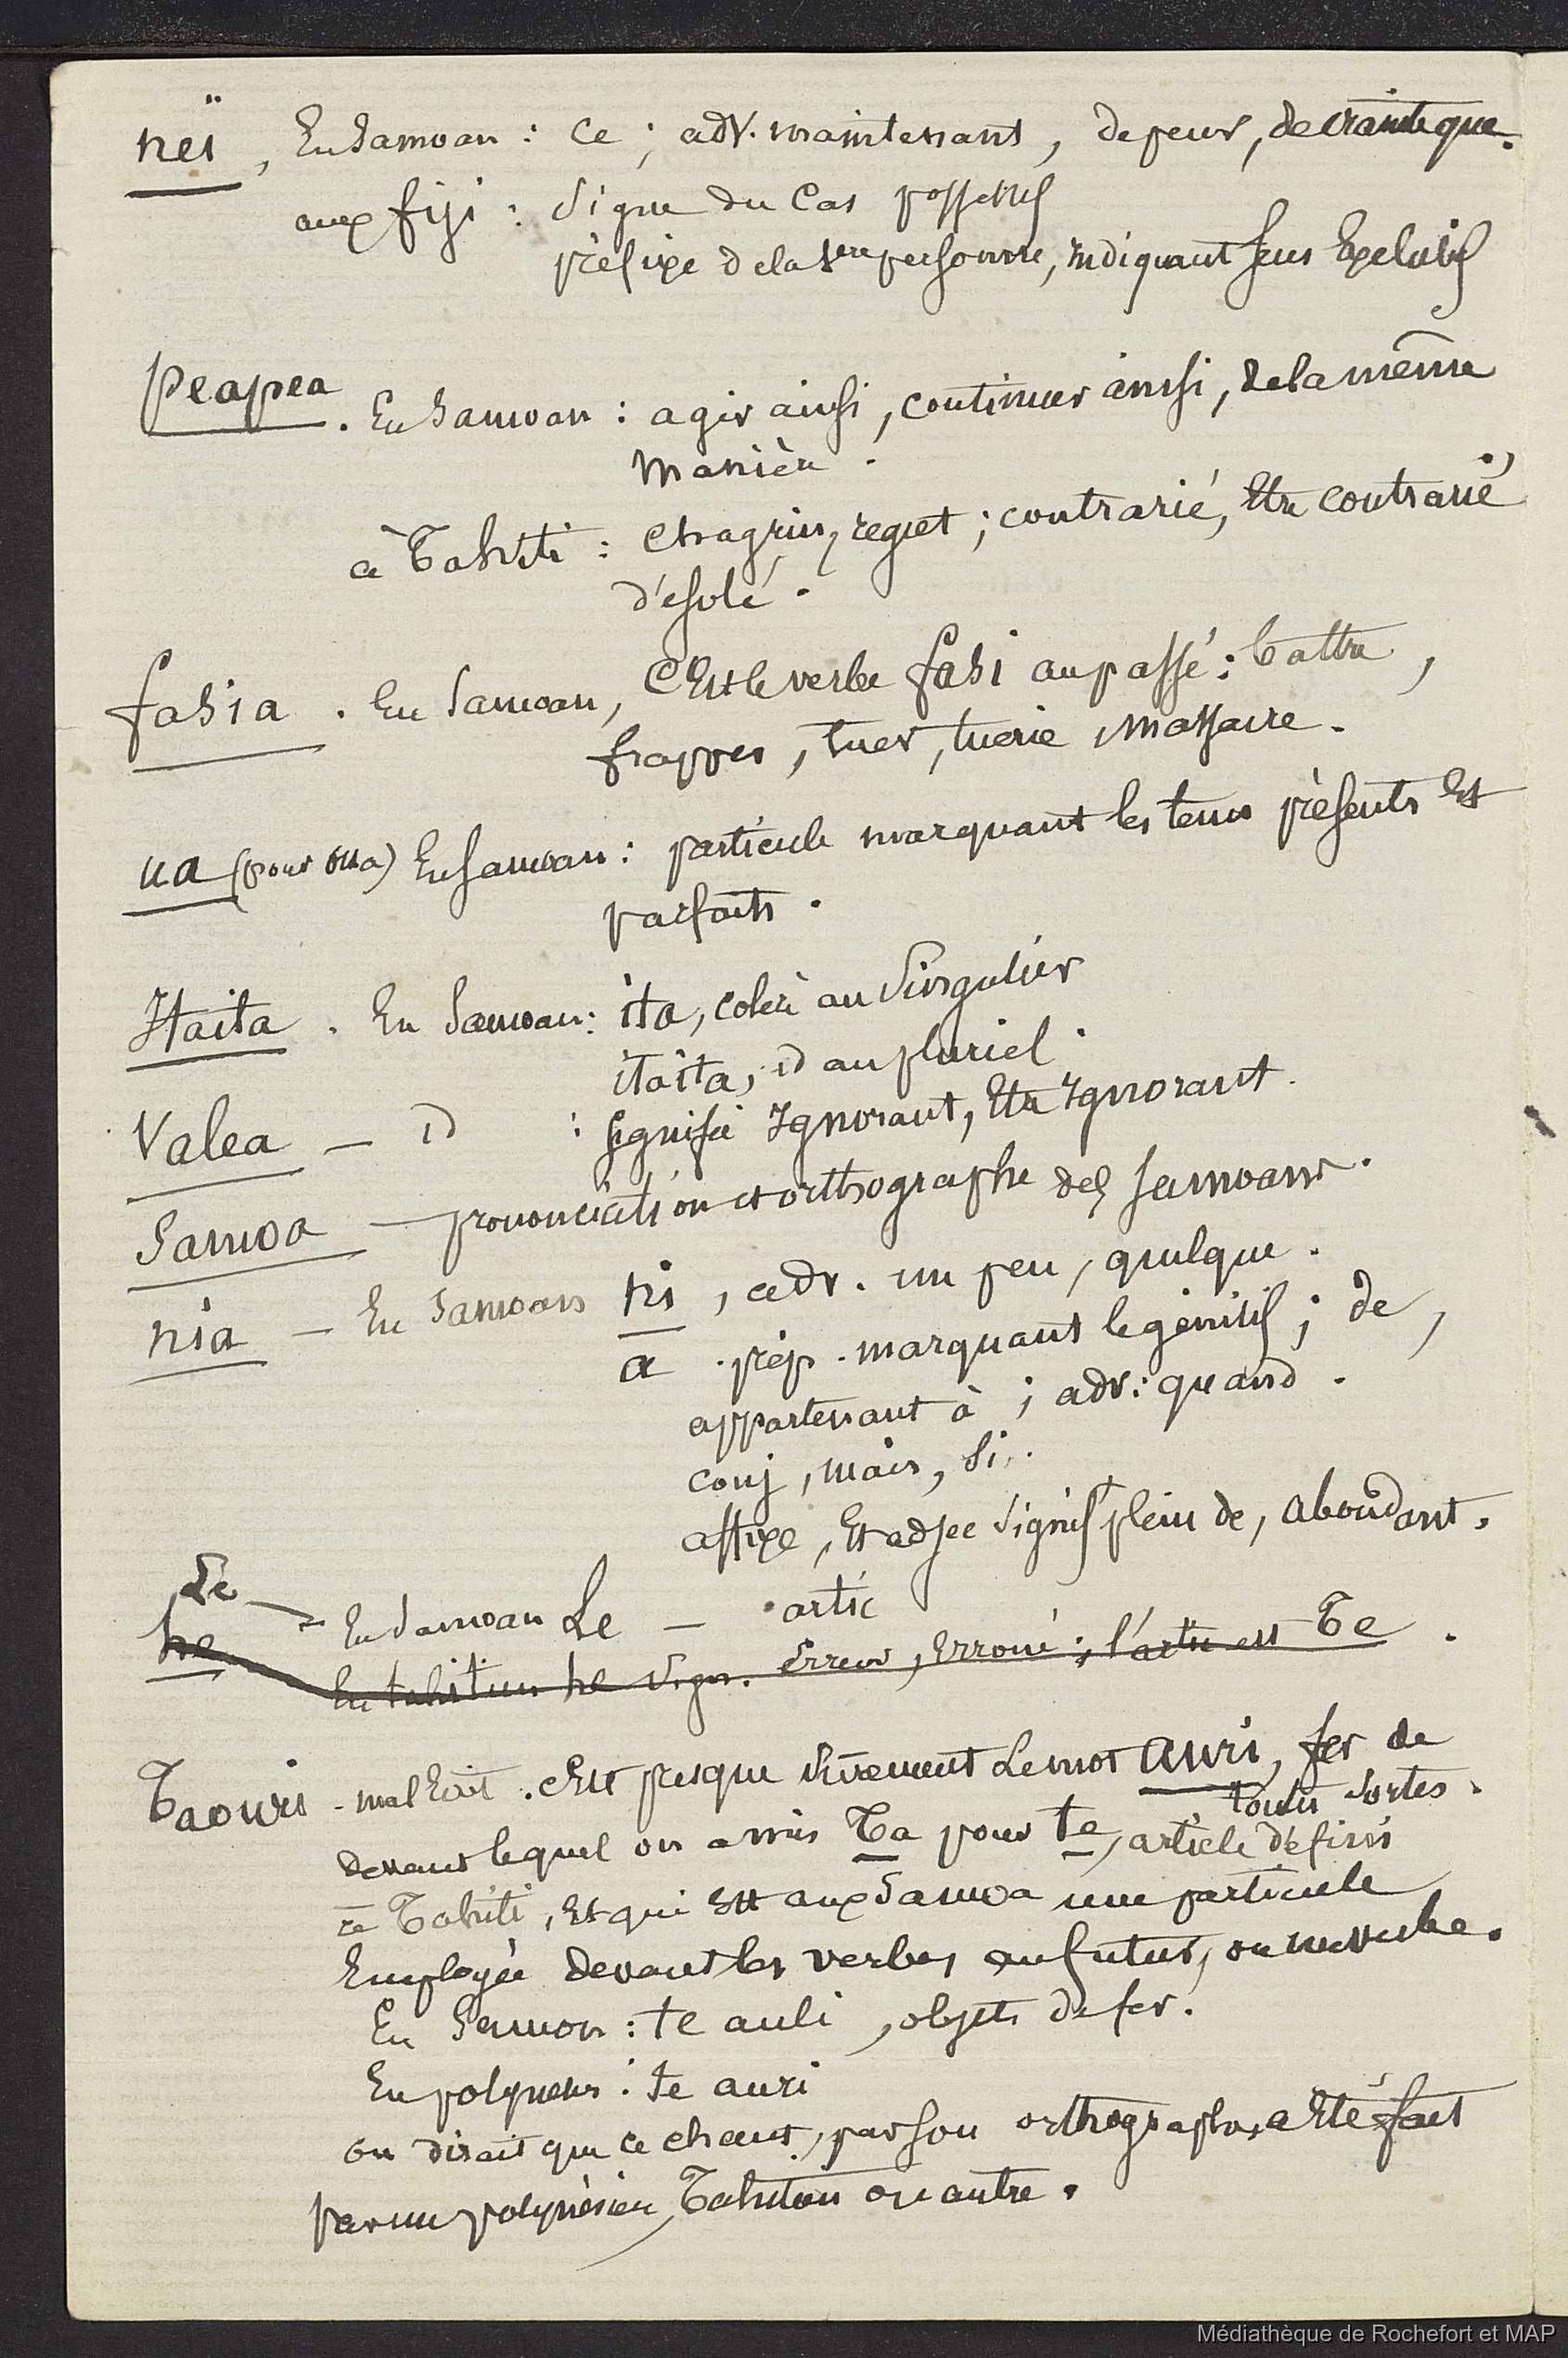 neï, En Samoan : Ce ; adv. maintenant, de peur, de crainte que.
aux fiji : Signe du Cas possessif
préfixe de la 1ere personne, indiquant sens Exclusif
Peapea. En Samoan : agir ainsi, continuer ainsi, de la même
manière.
à Tahiti : chagrin, regret ; contrarié, Etre contrarié,
désolé.
fasia. En Samoan, C'Est le verbe fasi au passé : battre,
frapper, tuer, tuerie, massacre.
ua (pour oua) En Samoan : particule marquant les tems présents Et
parfaits.
Itaita. En Samoan : ita, colère au Singulier
itaita, id au pluriel.
Valea — id : signifie Ignorant, Etre Ignorant.
Samoa — prononciation et orthographe des Samoans.
nia — En Samoan ni, adv. un peu, quelque.
a. prép. marquant le génitif ; de,
appartenant à ; adv : quand.
conj, mais, si.
affixe, Et adjec signift plein de, abondant.
Le — En Samoan Le — artic
he En tahitien he sign. Erreur, Erroné ; l'artic est Te.
Taouri - mal Ecrit. C'Est presque sûrement Le mot auri, fer de
toutes sortes.
devant lequel on a mis Ta pour te, article défini
à Tahiti, Et qui Est aux Samoa une particule
Employée devant les verbes au futur, ou
En Samoan : te auli, objets de fer.
En polynesn : te auri
on dirait que ce chant, par son orthographe, a Eté fait
par un polynésien, Tahitien ou autre.
Médiathèque de Rochefort et MAP